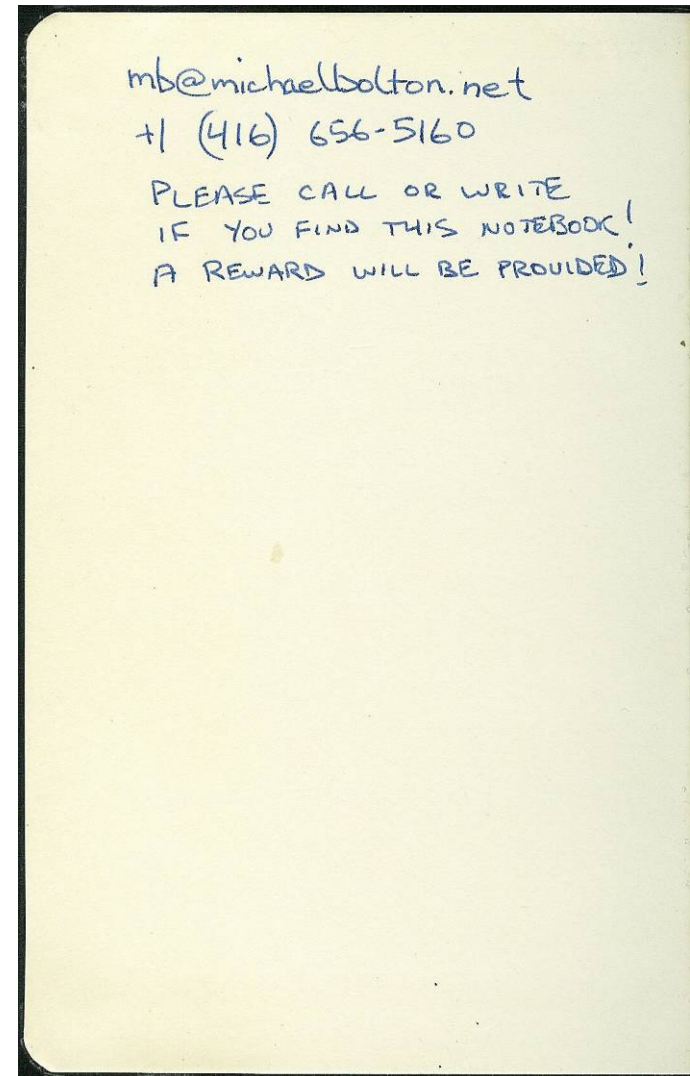 mb@michaelbolton.net
+1 (416) 656-5160
PLEASE CALL OR WRITE
IF YOU FIND THIS NOTEBOOK!
A REWARD WILL BE PROVIDED!